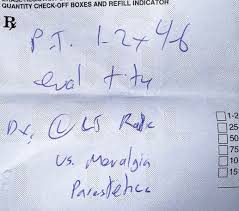 QUANTITY CHECK-OFF BOXES AND REFILL INDICATOR
℞
P.T. 1-2x 4-6
eval +
Dx. Ⓛ L5 Radic
vs. Meralgia
Paresthetica
1-2
25
50
75
10
15